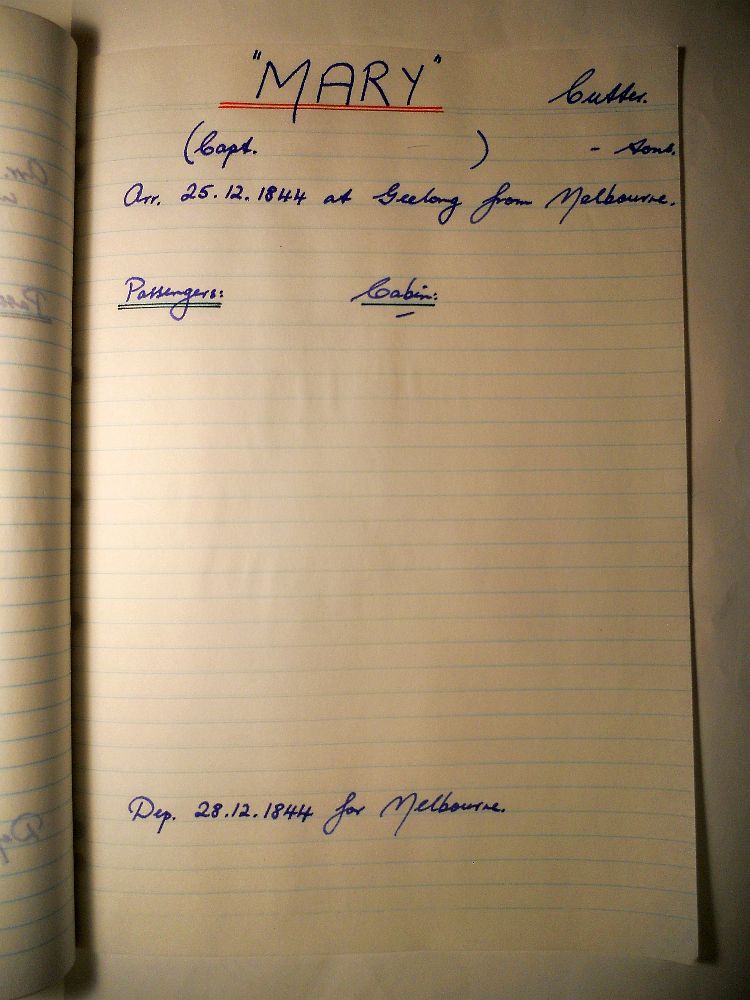 "MARY" Cutter.
(Capt. ) - tons.
Arr. 25.12.1844 at Geelong from Melbourne.
Passengers: Cabin:
-
Dep. 28.12.1844 for Melbourne.